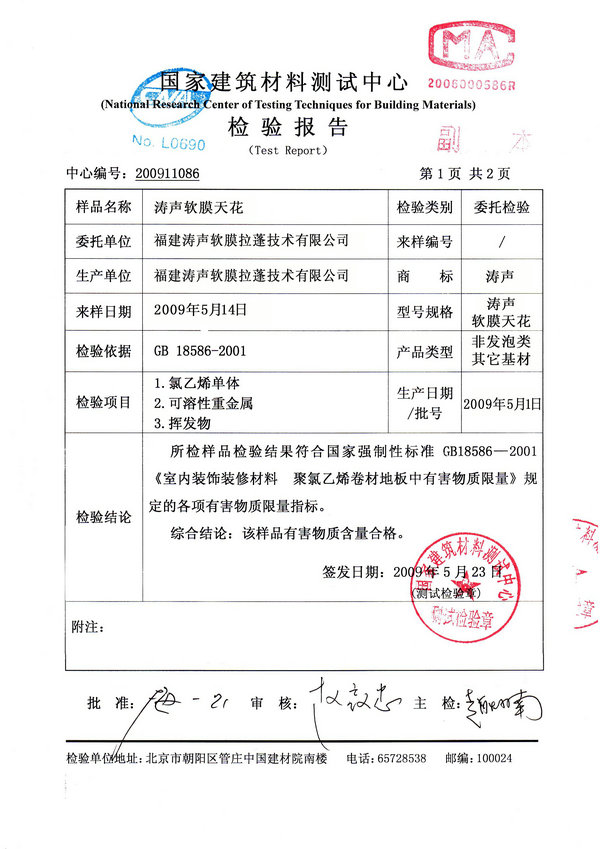 CMA
2008000586R
国家建筑材料测试中心
(National Research Center of Testing Techniques for Building Materials)
CNAL
No. L0690
检验报告
(Test Report)
副 本
中心编号：200911086
第1页 共2页
样品名称 涛声软膜天花 检验类别 委托检验
委托单位 福建涛声软膜拉蓬技术有限公司 来样编号 /
生产单位 福建涛声软膜拉蓬技术有限公司 商 标 涛声
来样日期 2009年5月14日 型号规格 涛声
软膜天花
检验依据 GB 18586-2001 产品类型 非发泡类
其它基材
检验项目 1.氯乙烯单体
2.可溶性重金属
3.挥发物
生产日期
/批号
2009年5月1日
检验结论
所检样品检验结果符合国家强制性标准 GB18586—2001
《室内装饰装修材料 聚氯乙烯卷材地板中有害物质限量》规
定的各项有害物质限量指标。
综合结论：该样品有害物质含量合格。
签发日期：2009年5月23日
(测试检验章)
国家建筑材料测试中心
测试检验章
附注：
批 准： 审 核： 主 检：
检验单位地址：北京市朝阳区管庄中国建材院南楼 电话：65728538 邮编：100024